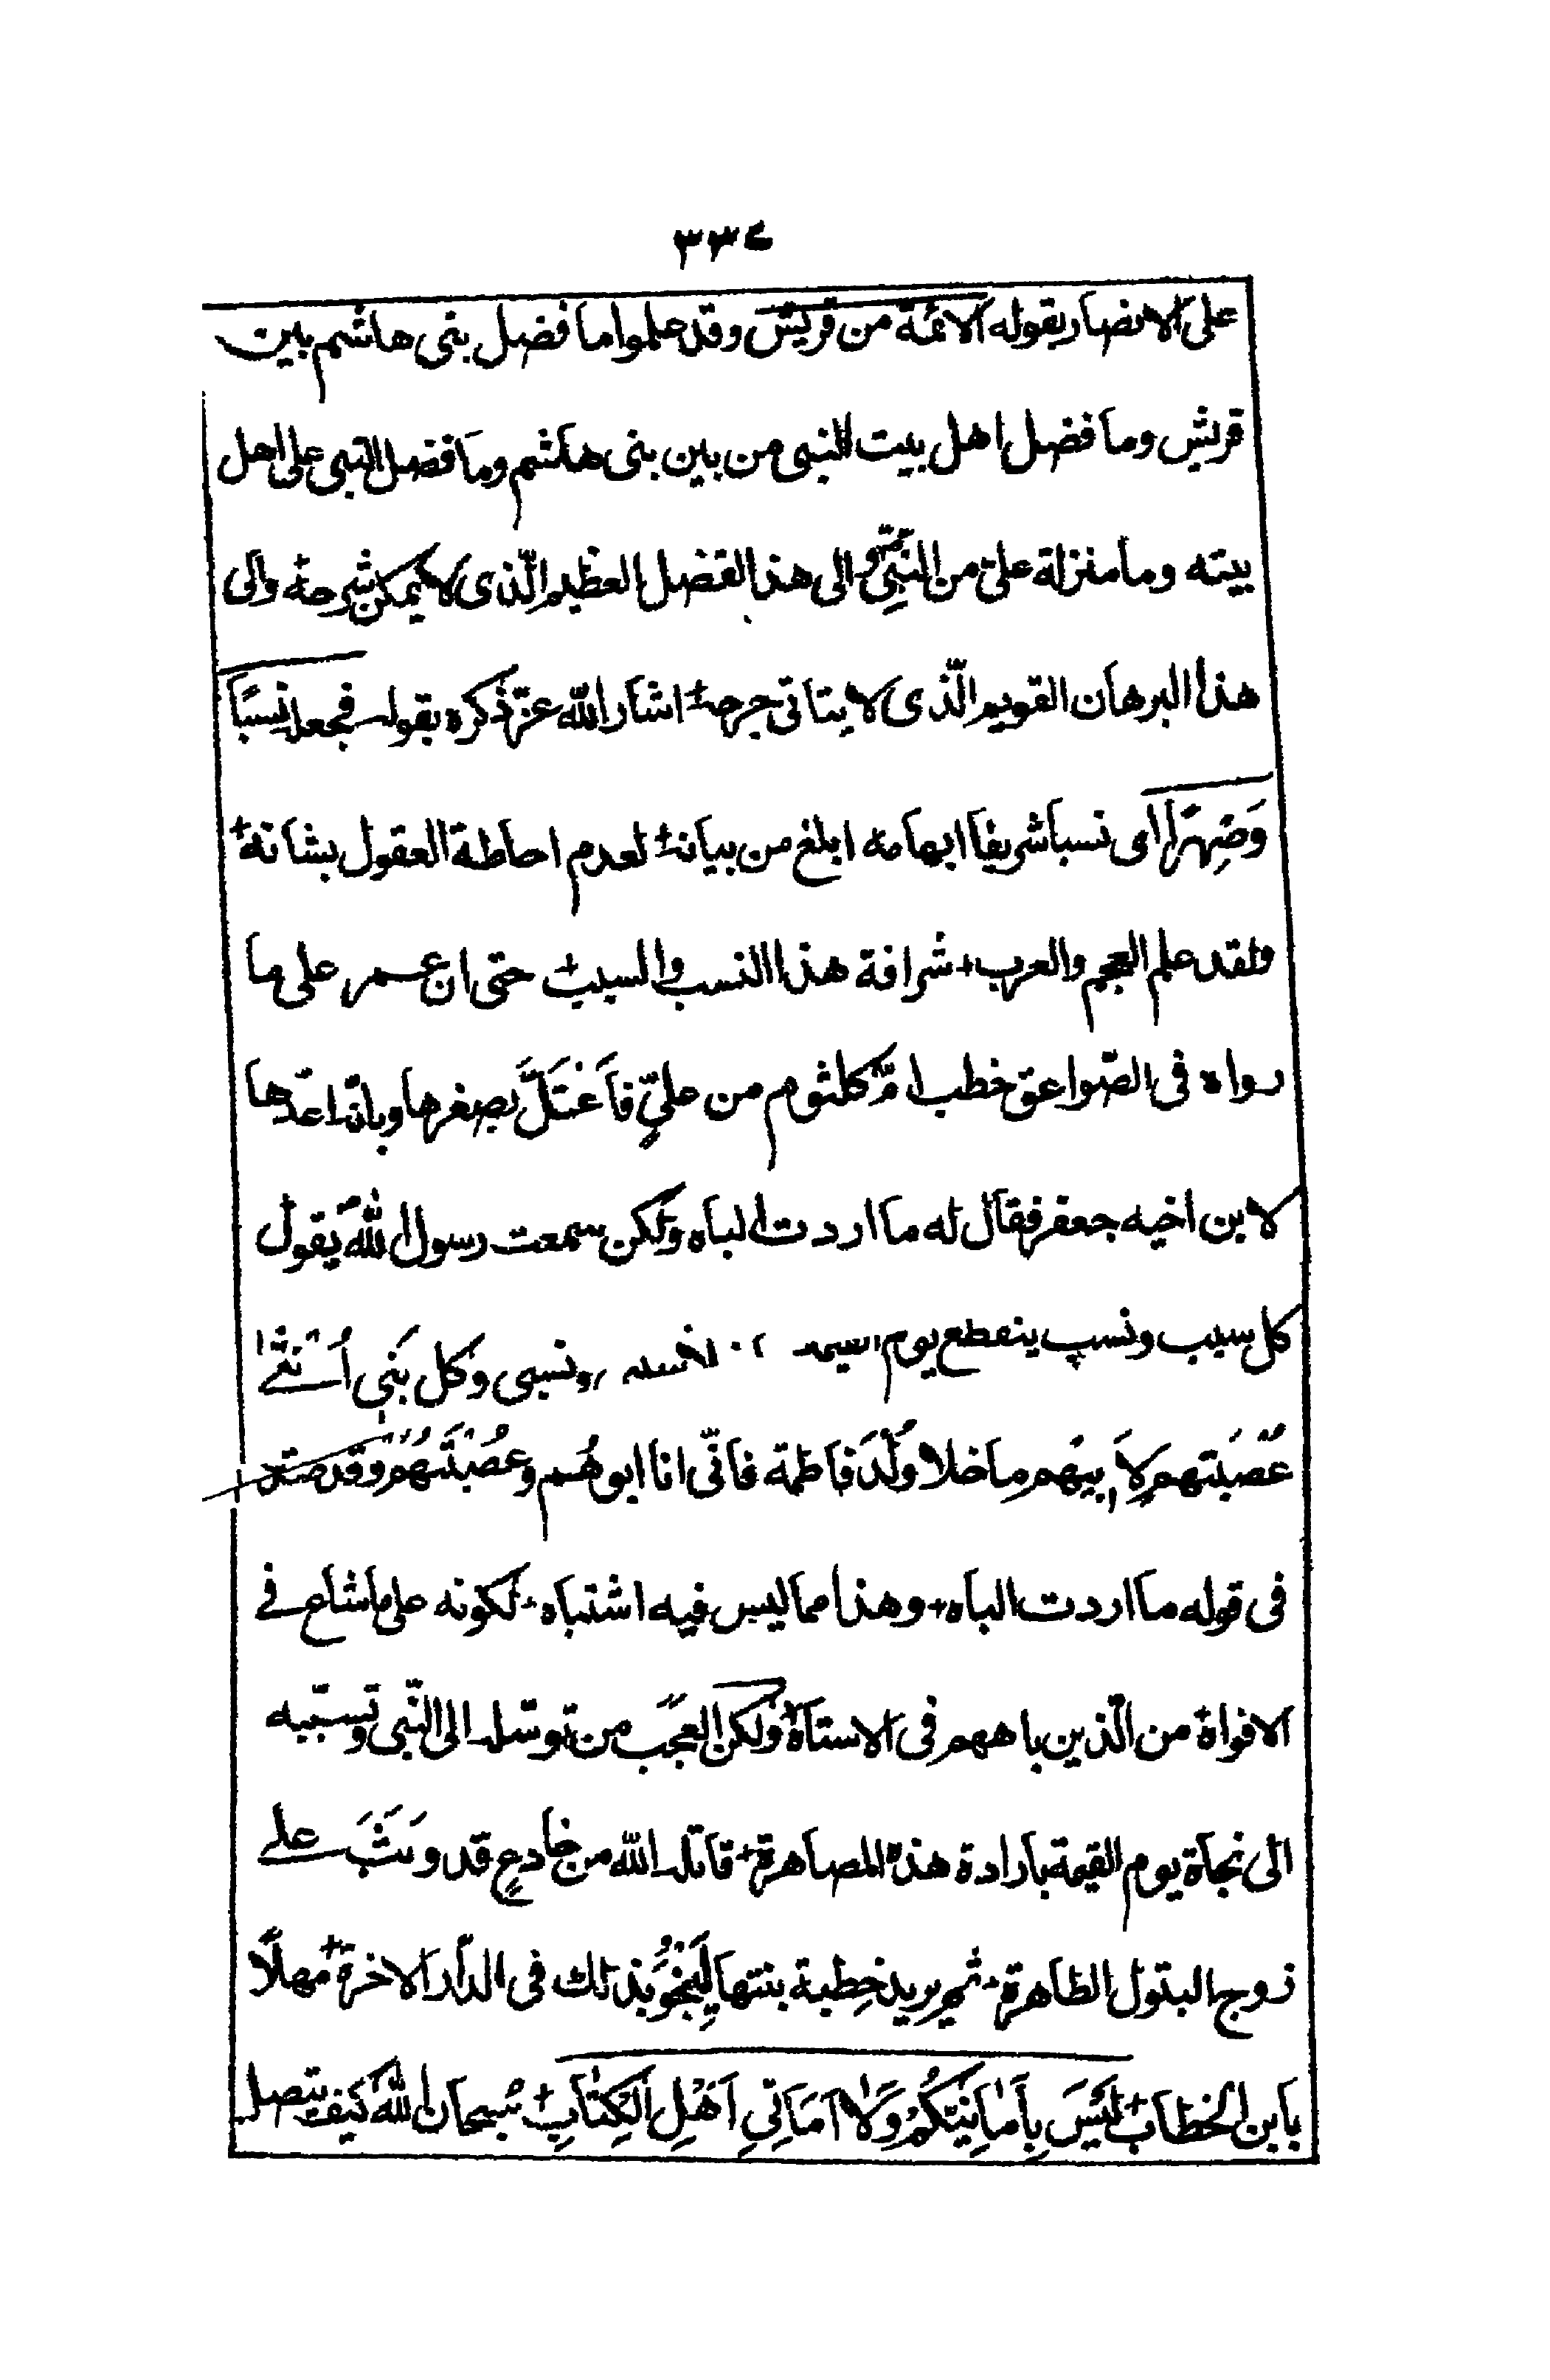 ٣٣٤
على الانصار بقوله الائمة من قريش وقد علموا ما فضل بنى هاشم بين
قريش وما فضل اهل بيت النبى من بين بنى هاشم وما فضل النبى على اهل
بيته وما منزلة علىّ من النّبىّ والى هذا الفضل العظيم الّذى لا يمكن شرحه والى
هذا البرهان القويم الّذى لا يتاتى جرحه اشار اللّه عزّ ذكره بقوله فجعله نسبًا
وَصِهْرًا اى نسبا شريفا ابهامه ابلغ من بيانه لعدم احاطة العقول بشانه
ولقد علم العجم والعرب شرافة هذا النسب والسبب حتى ان عمر على ما
رواه فى الصّواعق خطب امّ كلثوم من علىٍّ فَاعْتَلَّ بصغرها وبانّه اعدّها
لابن اخيه جعفر فقال له ما اردت الباه ولكن سمعت رسول اللّه يقول
كل سبب ونسب ينقطع يوم ونسبى وكل بَنِى اُنْثٰى
عُصْبَتهم لِاَبِيهُم ما خلا وُلْدَ فاطمة فانّى انا ابوهُم وعُصْبَتُهُمْ وقد صدق
فى قوله ما اردت الباه وهذا مما ليس فيه اشتباه لكونه على ما شاع فى
الافواه من الّذين باههم فى الاستاه ولكن العجب من توسّله الى النّبى وتسبّبه
الى نجاة يوم القيمة بارادة هذه المصاهرة قاتله اللّه من خادعٍ قد وَثَبَ على
زوج البتول الطاهرة ثم يريد خِطبة بنتها لِيَنْجُوَ بذلك فى الدّار الاخرة مهلًا
يا بن الخطاب لَيْسَ بِاَمَانِيِّكُمْ وَلَا اَمَانِىِّ اَهْلِ الْكِتٰابِ سُبحان اللّه كيف يتصل